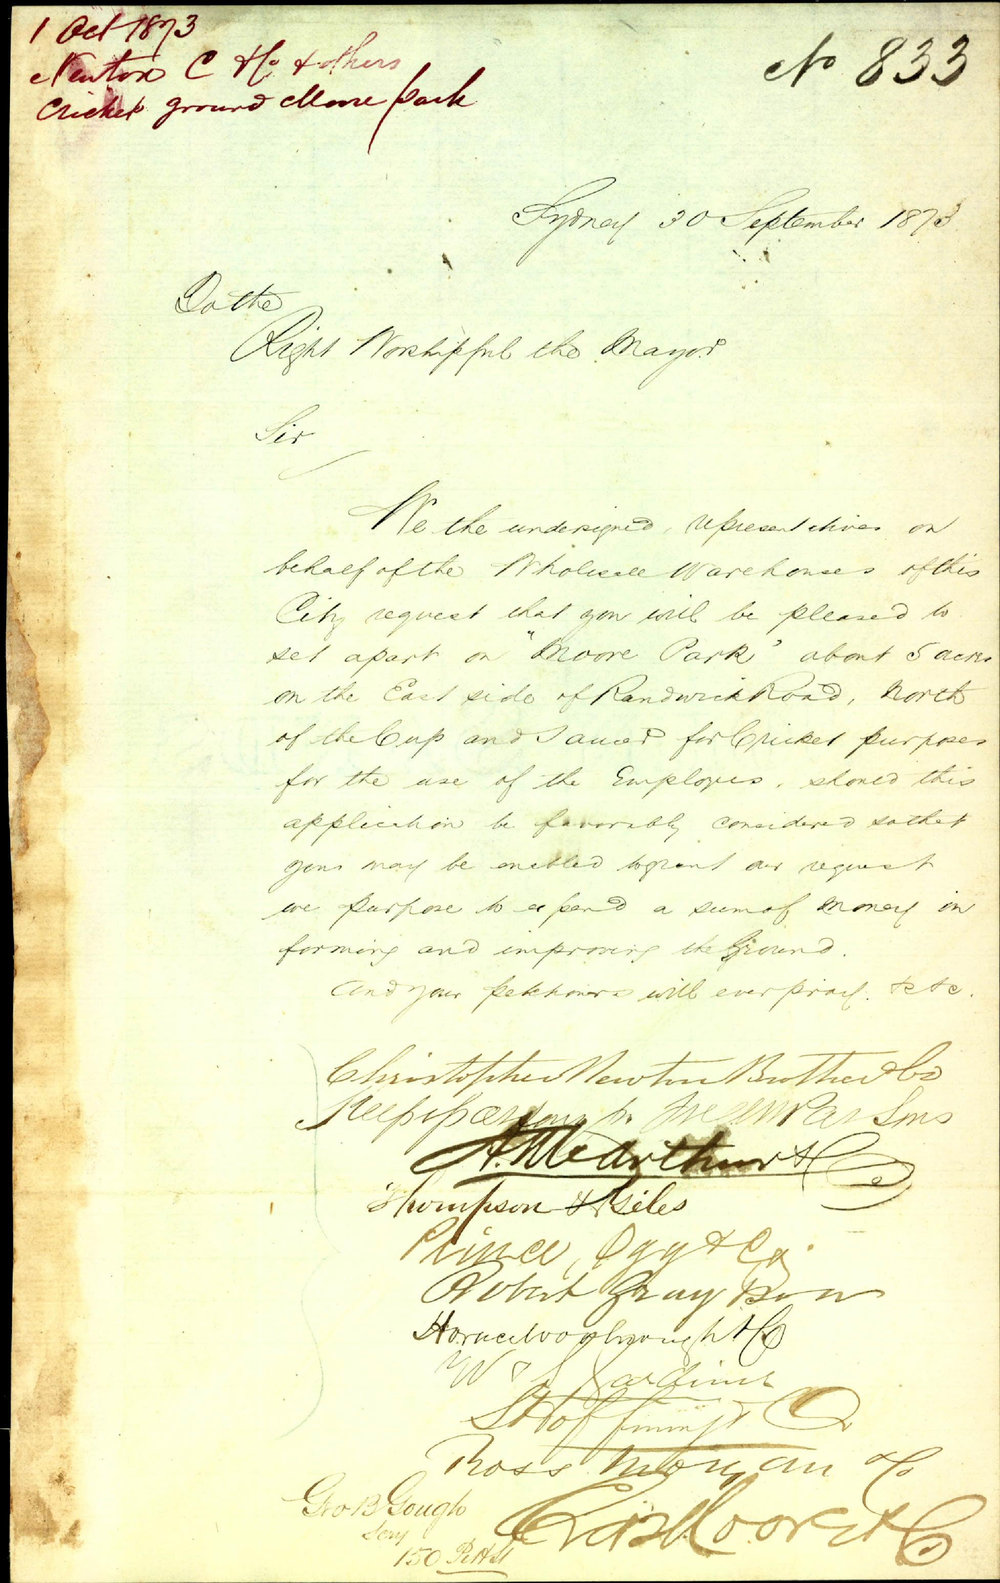 1 Oct 1873
Newton C & Co & others
Cricket ground Moore park
No 833
Sydney 30 September 1873
To the
Right Worshipful the Mayor
Sir
We the undersigned, representatives on
behalf of the Wholesale Warehouses of this
City request that you will be pleased to
set apart on "Moore Park" about 5 acres
on the East side of Randwick Road, North
of the Cup and Saucer for Cricket purposes
for the use of the Employes. should this
application be favorably considered so that
you may be enabled to grant our request
we purpose to expend a sum of money in
forming and improving the Ground.
And your petitioners will ever pray. &c &c.
Christopher Newton Brother & Co
A. McArthur & Co
Thompson & Giles
Prince, Ogg & Co
Robert Gray
Horace Woolnough & Co
W Gardiner
S Hoffnung & Co
Ross Morgan & Co
Moore & Co
Geo B Gough
Secy
150 Pitt St